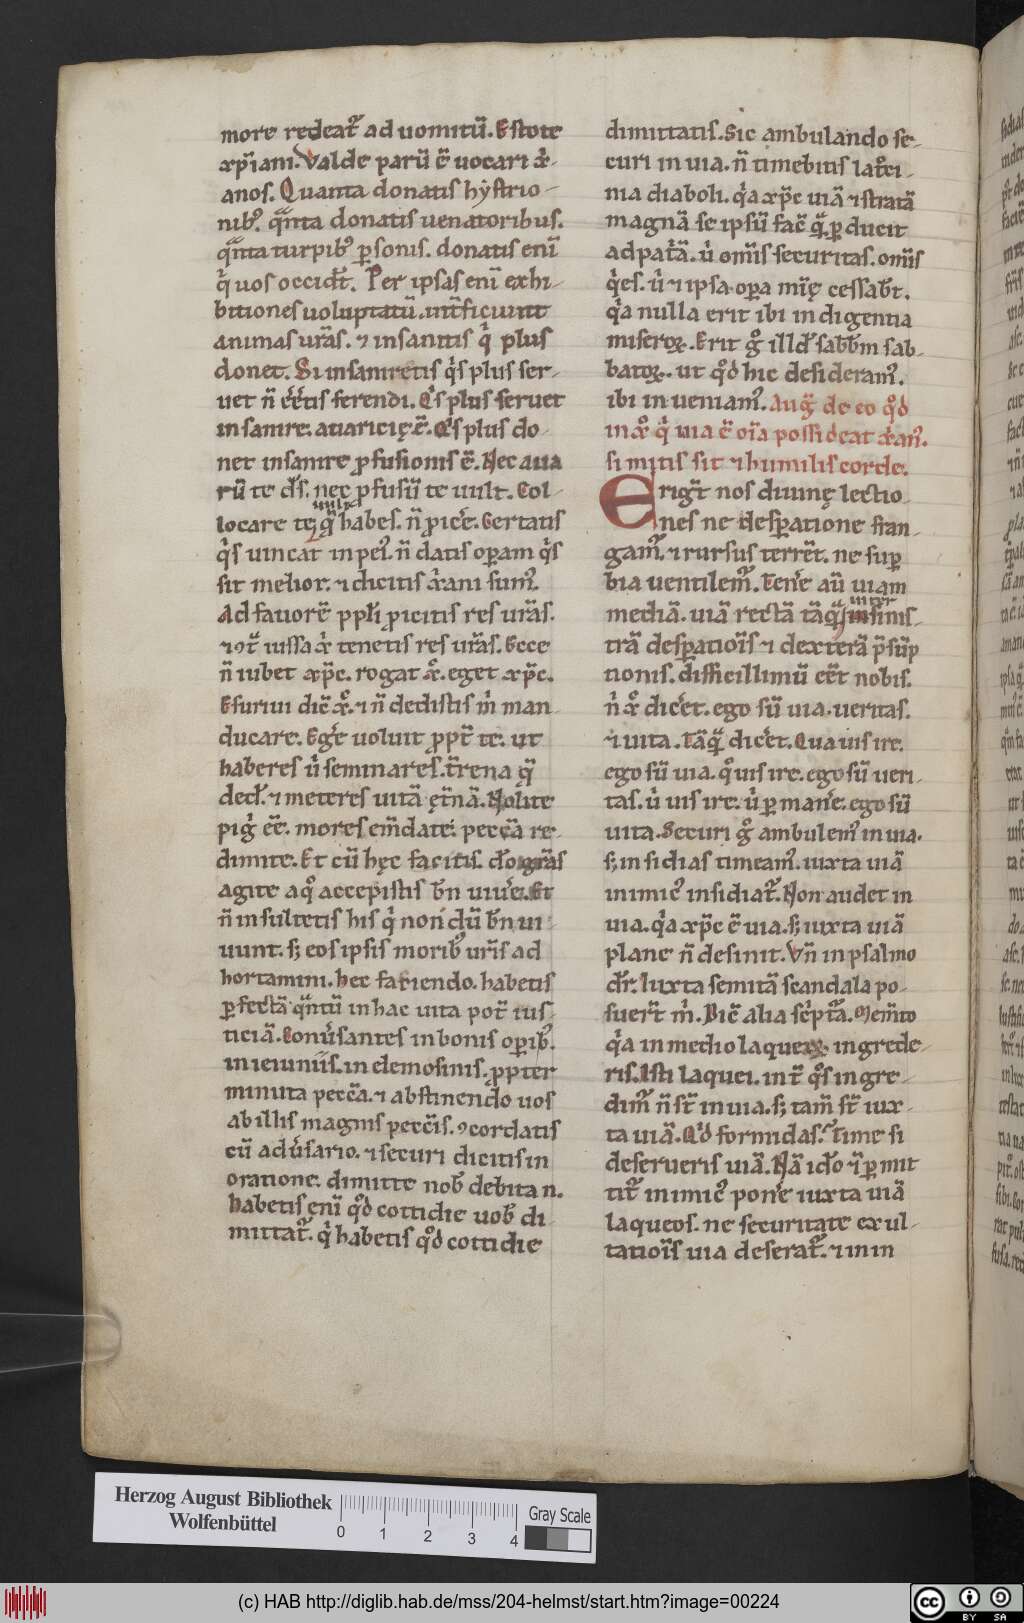 more redeat᷑ ad uomitū. Estote
xp̄iani. Valde parū ē uocari xr̄i-
anos. Quanta donatis hẏstrio-
nib᷒. q̄nta donatis uenatoribus.
q̄nta turpib᷒ ꝑsonis. donatis enī
qͥ uos occidt̄. Per ipsas enī exhi-
bitiones uoluptatū. int̄ficiunt
animas ur̄as. ⁊ insanitis qͥ plus
donet. Si insaniretis qͥs plus ser-
uet n̄ ēētis ferendi. Qͥs plus seruet
insanire. auaricię ē. Qͥs plus do-
net insanire ꝓfusionis ē. Nec aua
rū te ds̄. nec ꝓfusū te uult. Col-
locare te uult q̄ habes. n̄ ꝓicēe. Certatis
qͥs uincat in pei᷒. n̄ datis oꝑam qͥs
sit melior. ⁊ dicitis xr̄ani sum᷒.
Ad fauorē ppl̄i ꝓicitis res ur̄as.
⁊ ꝯt̄ iussa xͥ tenetis res ur̄as. Ecce
n̄ iubet xp̄c. rogat xͦ. eget xp̄c.
Esuriui dic̄ xͦ. ⁊ n̄ dedistis mͥ man-
ducare. Egēe uoluit ꝓpt̄ te. ut
haberes uͥ seminares. t̄rena q̄
ded̄. ⁊ meteres uitā ęt̄nā. Nolite
pigͥ ēē. mores em̄date. pecc̄a re-
dimite. Et cū hęc facitis. dō gr̄as
agite a qͦ accepistis bn̄ uiuēe. Et
n̄ insultetis his qͥ non dū bn̄ ui-
uunt. ſ; eos ipsis morib᷒ ur̄is ad
hortamini. hec faciendo. habetis
ꝑfectā q̄ntū in hac uita pot̄ ius-
ticiā. Conūsantes in bonis oꝑib᷒.
in ieiuniis. in elemosinis. ꝓpter
minuta pecc̄a. ⁊ abstinendo uos
ab illis magnis pecc̄is. ꝯcordatis
cū adūsario. ⁊ securi dicitis in
oratione. dimitte nob̄ debita n̄.
habetis enī qͦd cottidie uob̄ di-
mittat᷑. qͥ habetis qͦd cottidie
dimittatis. Sic ambulando se-
curi in uia. n̄ timebitis lat̄ci-
nia diaboli. qͥa xp̄c uiā ⁊ stratā
magnā se ipsū fac̄ q̄ ꝑducit
ad pat̄ā. uͥ om̄is securitas. om̄is
qͥes. uͥ ⁊ ipsa oꝑa mīę cessab̄t.
qͥa nulla erit ibi indigentia
miseroꝝ. Erit gͦ illd̄ sabb̄m sab-
batoꝝ. ut qͦd hic desideram᷒.
ibi inueniam᷒. Auḡ de eo qͦd
in xͦ qͥ uia ē oīa possideat xr̄an᷒.
si mitis sit ⁊ humilis corde.
Erig̅t nos diuinę lectio-
nes ne desꝑatione fran-
gam᷑. ⁊ rursus terre̅t. ne suꝑ
bia uentilem᷑. Tenēe aū uiam
mediā. uiā rectā tāq̄ inter sinis-
trā desꝑatioīs ⁊ dexterā p̄sūp
nonis. difficillimū ēēt nobis.
nͥ xͦ dicēet. ego sū uia. ueritas.
⁊ uita. Tāq̄ dicēet. Qua uis ire.
ego sū uia. qͦ uis ire. ego sū ueri-
tas. uͥ uis ire. uͥ ꝑmanēe. ego sū
uita. Securi gͦ ambulem᷒ in uia.
ſ; insidias timeam᷒. iuxta uiā
inimic᷒ insidiat᷑. Non audet in
uia. qͥa xp̄c ē uia. ſ; iuxta uiā
plane n̄ desinit. Vn̄ in psalmo
dr̄. Iuxta semitā scandala po-
suer̄t mͥ. Dic̄ alia sc̄pt̄a. Mem̄to
qͥa in medio laqueoꝝ ingrede-
ris. Isti laquei. int̄ qͦs ingre-
dim᷑ n̄ st̄ in uia. ſ; tam̄ st̄ iux-
ta uiā. Qͥd formidas? Time si
deserueris uiā. Nā idō ꝑmit
tit᷑ inimic᷒ ponēe iuxta uiā
laqueos. ne securitate exul-
tatioīs uia deserat᷑. ⁊ in in
Herzog August Bibliothek
Wolfenbüttel
0 1 2 3 4
Gray Scale
(c) HAB http://diglib.hab.de/mss/204-helmst/start.htm?image=00224
cc BY SA